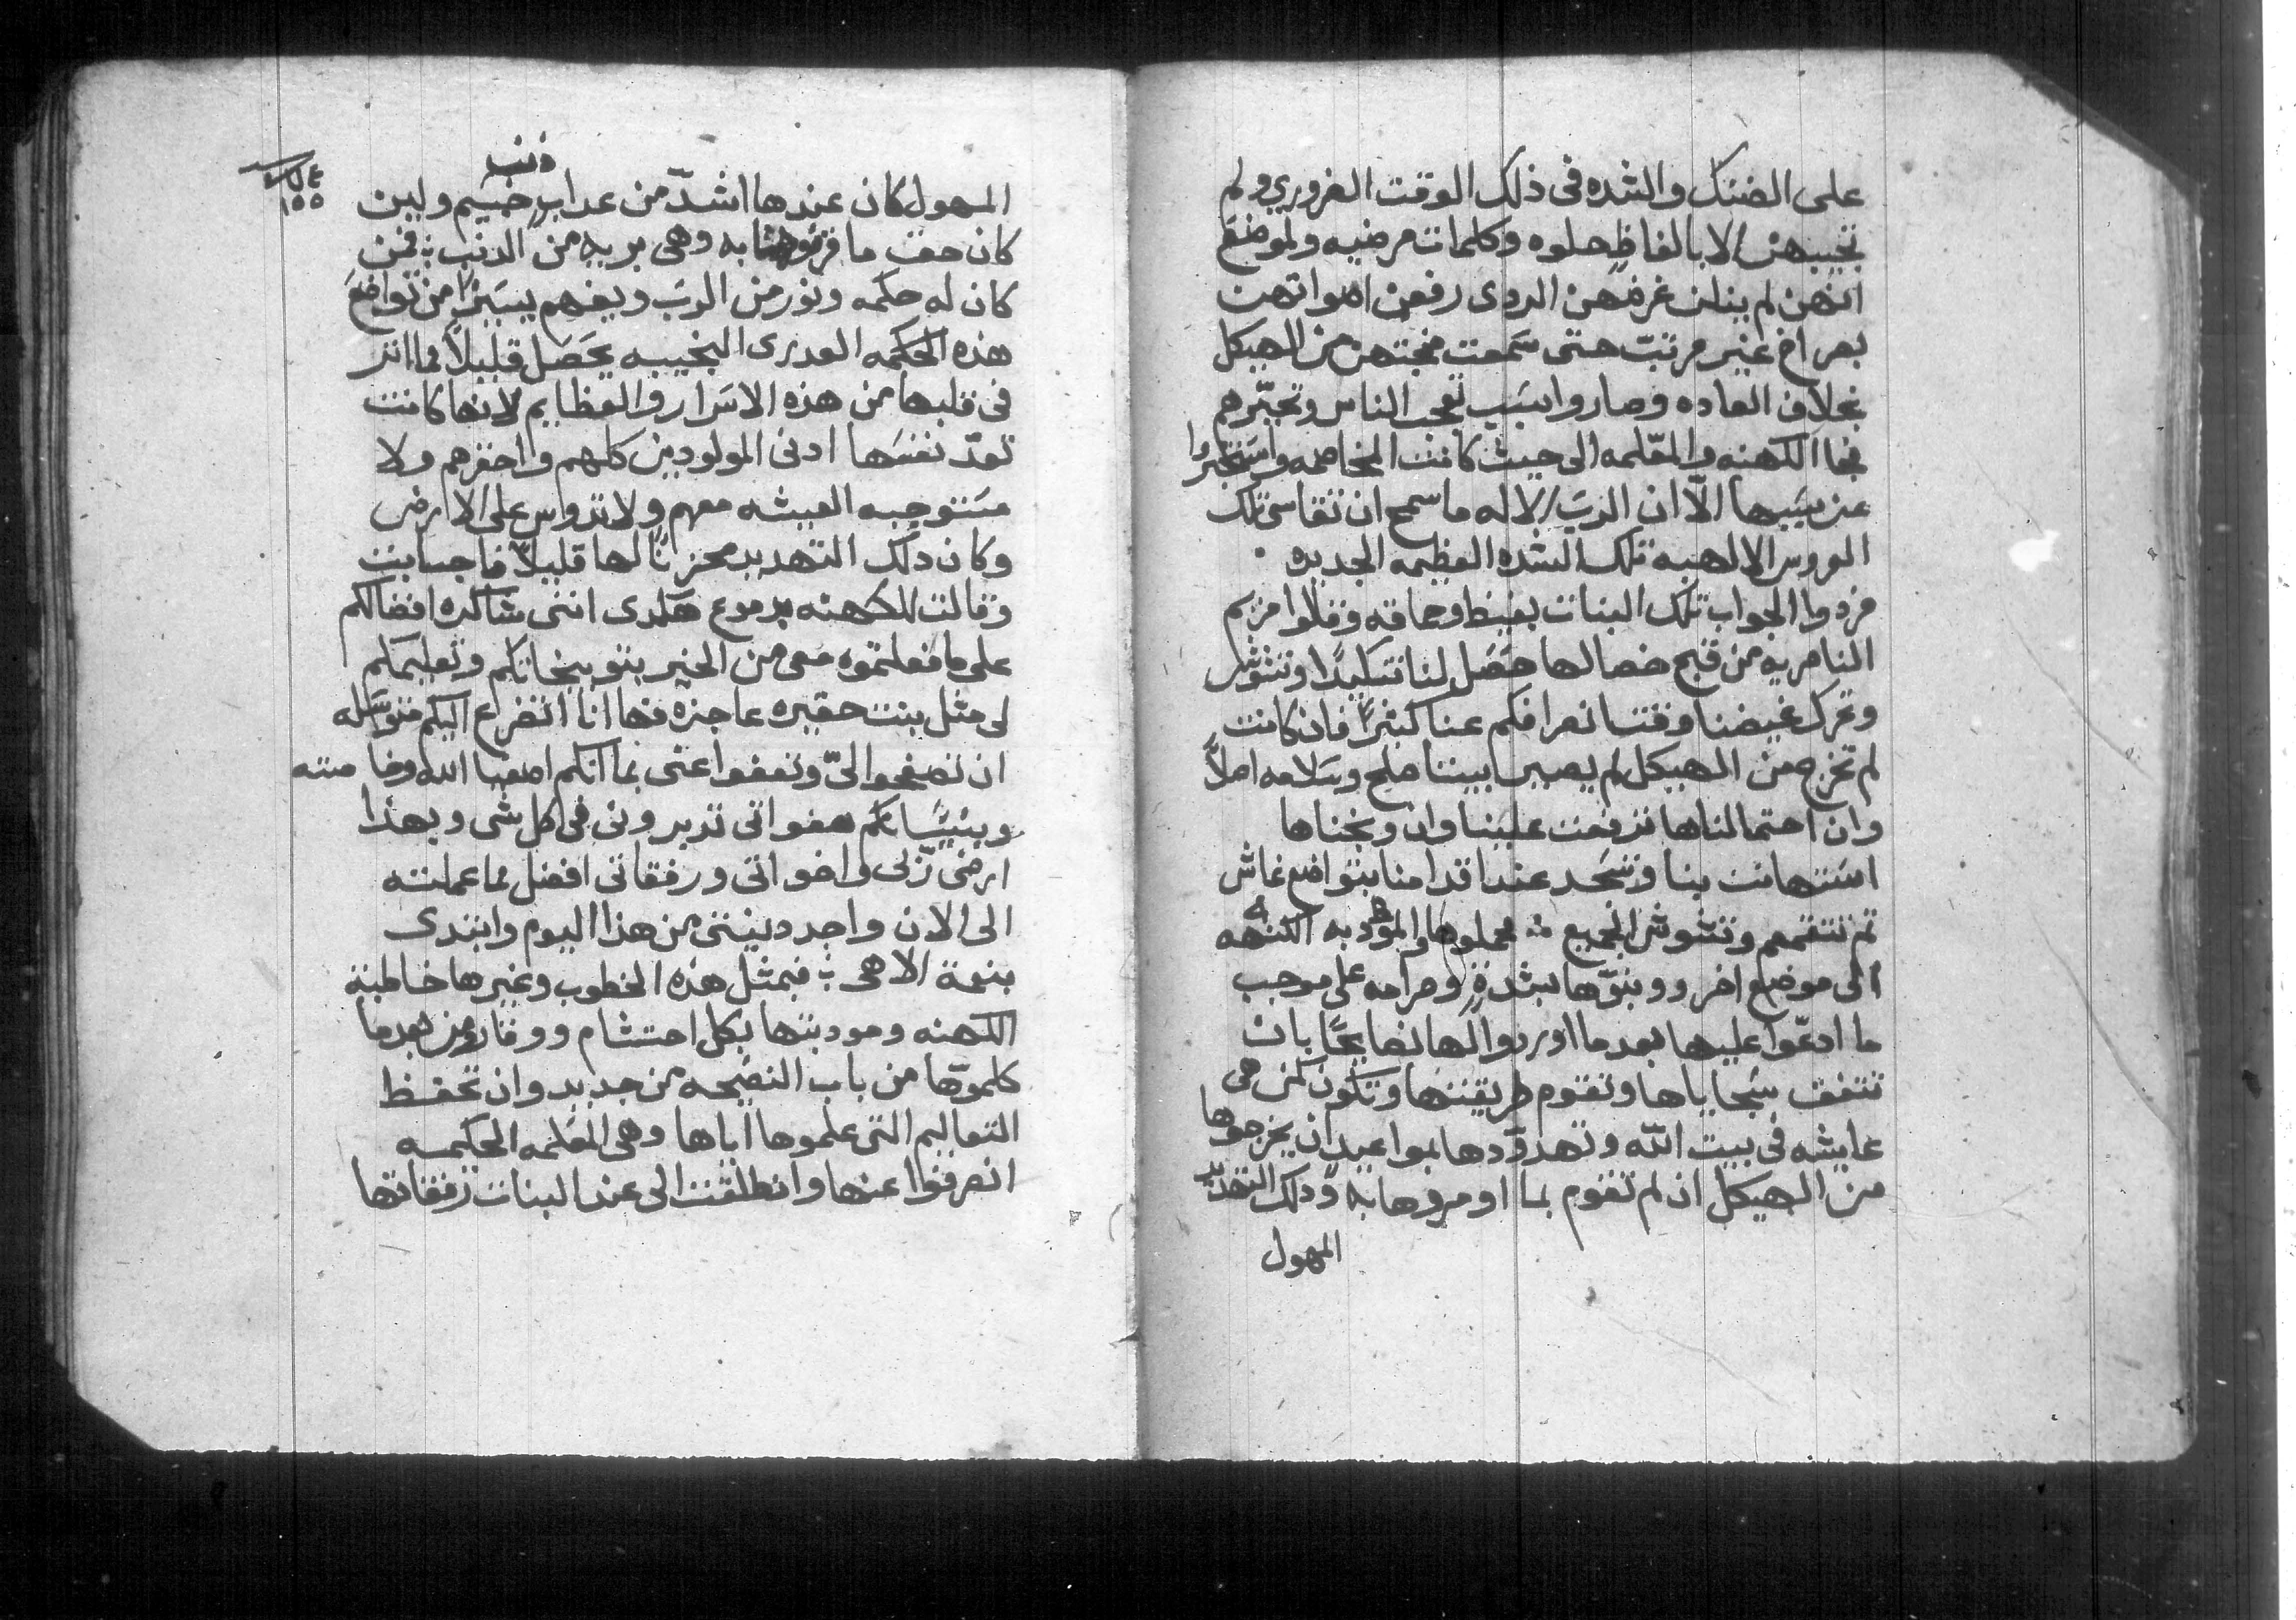 على الضنك والشده فى ذلك الوقت الضروري ولم
تجيبهن الا بالفاظٍ حلوه وكلمات مرضيه ولموضع
انهن لم ينلن غرضهن الردى رفعن اصواتهن
بصراخ غير مرتبّ حتى سمعت ضجتهن من الهيكل
بخلاف العاده وصاروا بسبب تعجب الناس وتحيّرهم
فجا الكهنه والمعّلمه الى حيث كانت المخاصمه واستخبروا
عن سببها الّا ان الربّ الاله ما سمح ان تقاسى تلك
العروس الالهيه تلك الشده العظيمه الجديده
فردوا الجواب تلك البنات بغيظ وحماقه وقلوا مريم
الناصريه من قبح خصالها حصل لنا تنكيدًا وتشوش
وتحرك غيضنا وقت انصرافكم عنا كثيرًا فان كانت
لم تخرج من الهيكل لم يصير بيننا صلح وسلامه اصلاً
وان احتمالناها تترفعت علينا وان وبخناها
استهانت بنا وتسجد عند اقدامنا بتواضع غاش
ثم تنتقمهم وتشوش الجميع فحملوها والموْدبه الكنهه
الى موضع اخر ووبّوها بشدةٍ وصرامه على موجب
ما ادعّوا عليها بعدما اوردوا لها نصايحًا بان
تتفق سجاياها وتقوم طريقتها وتكون كمن هى
عايشه فى بيت الله وتهدوّدها بمواعيد ان يخرجوها
من الهيكل ان لم تقوم بما اومروها به وذلك التهديد
المهول
١٥٥
ذنب
المهول كان عندها اشدّ من عداب جسيم ولين
كان حقت ما قرفوها به وهى بريه من الدنب فمن
كان له حكمه ونور من الربّ ويفهم يسيرًا من تواضع
هذه الحكمه العدرى النجيبه يحصل قليلاً مما اثر
فى قلبها من هذه الاسرار والعظايم لانها كانت
تعدّ نفسها ادنى المولودين كلهم واحقرهم ولا
مستوجبه العيشه معهم ولا تدوس على الارض
وكان دلك التهديد محزنًا لها قليلاً فاجابت
وقالت للكهنه بدموع هكدى اننى شاكره افضالكم
على ما فعلتموه معى من الخير بتوبيخاتكم وتعليمكم
لى مثل بنت حقيره عاجزه فها انا اتضرع اليكم متوسله
ان تصفحوا الىّ وتعفوا عنى بما انكم اصفيا الله وخاصته
وبنيسانكم هفواتى تدبرونى فى كل شى وبهذا
ارضى ربّى واخواتى ورفقاتى افضل مما عملته
الى الان واجدد نيتى من هذا اليوم وابتدى
بنعمة الاهى فبمثل هذه الخطوب وغيرها خاطبة
الكهنه ومودبتها بكل احتشام ووقار ومن بعد ما
كلموّها من باب النصيحه من جديد وان تحفظ
التعاليم التى علموها اياها وهى المعلمه الحكمه
انصرفوا عنها وانطلقت الى عند البنات رفقاتها